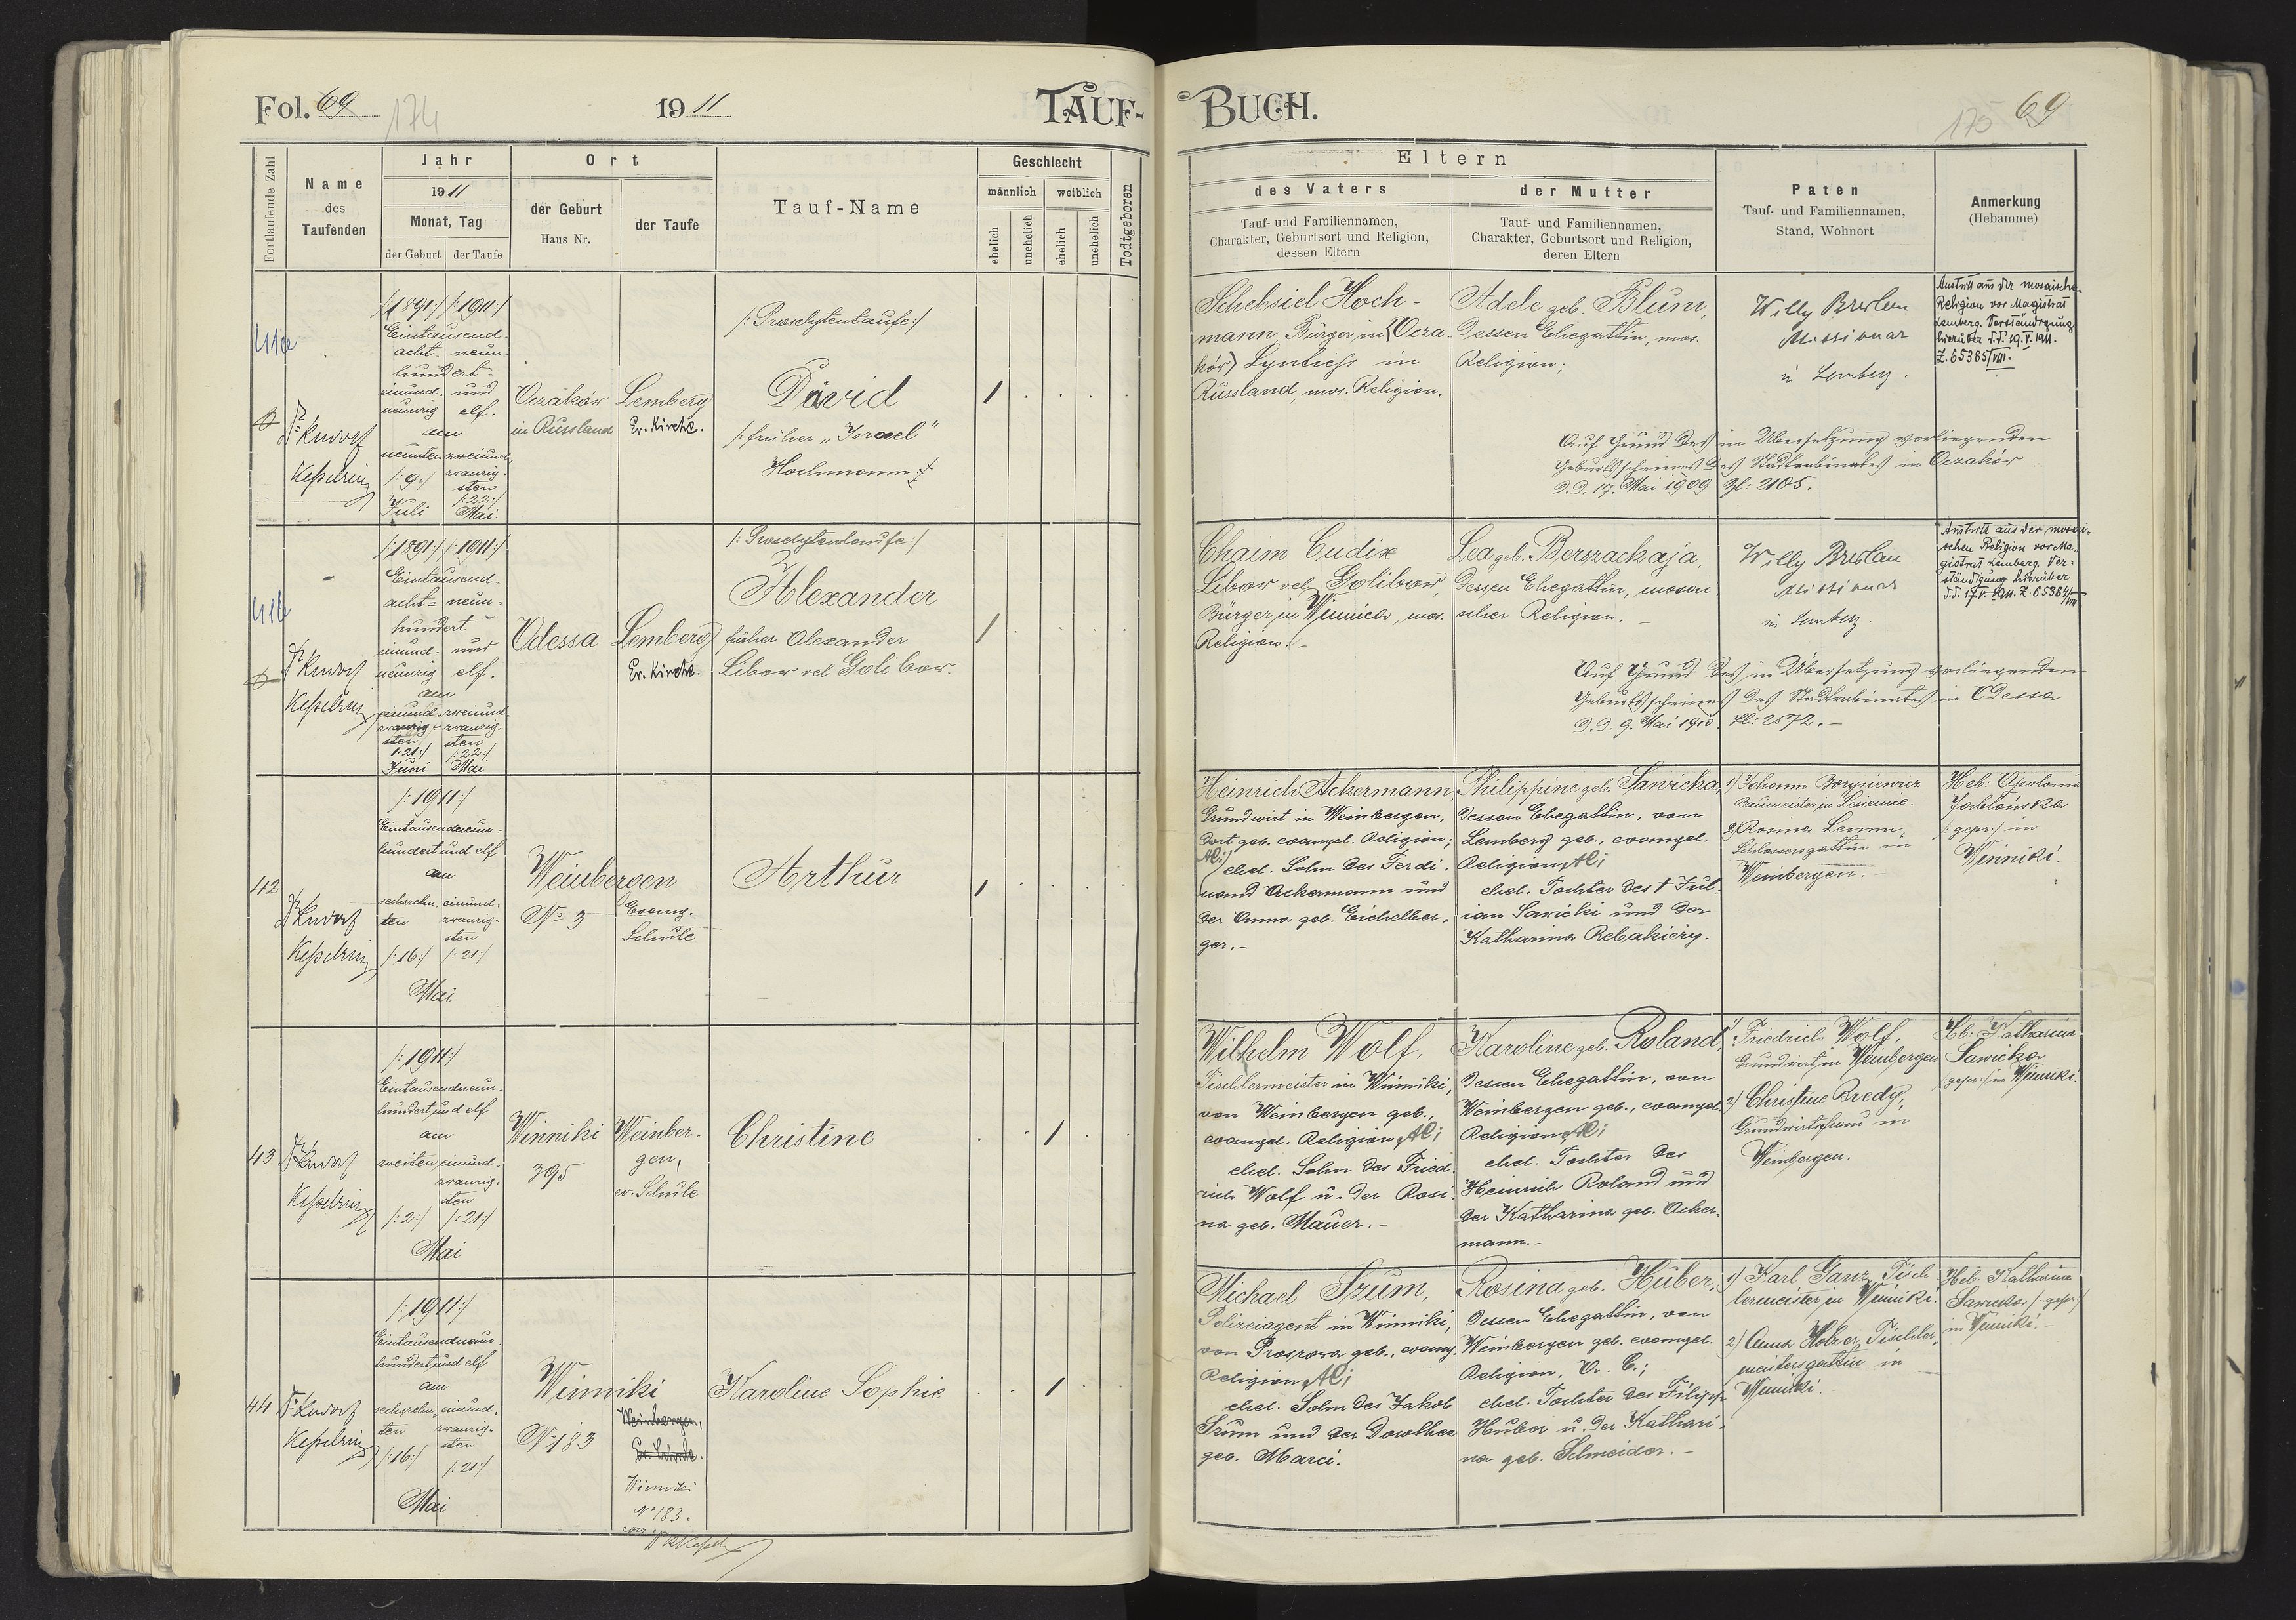 Fol. 69
174
1911
TAUF-
Fortlaufende Zahl
Name
des
Taufenden
Jahr
1911
Monat, Tag
der Geburt
der Taufe
Ort
der Geburt
Haus Nr.
der Taufe
Tauf-Name
Geschlecht
männlich
weiblich
ehelich
unehelich
ehelich
unehelich
Todtgeboren
41a
Dr
Kesselring
/:1891:/ /:1911:/
Eintausend-
acht- neun-
hundert-
einund- und
neunzig elf.
am
neunten zweiund-
zwanzig-
/:9:/ sten
/:22:/
Juli Mai.
Oczaków
in Russland
Lemberg
Ev. Kirche.
/:Proselytentaufe:/
David
/:früher „Israel"
Hochmann:/
1
41b
Dr
Kesselring
/:1891:/ /:1911:/
Eintausend-
acht= neun-
hundert-
einund- und
neunzig elf.
am
einund- zweiund-
zwanzig- zwanzig-
sten sten
/:21:/ /:22:/
Juni Mai
Odessa
Lemberg
Ev. Kirche.
/:Proselytentaufe:/
Alexander
früher Alexander
Libow vel Golibow.
1
42
Dr
Kesselring
/:1911:/
Eintausendneun-
hundert und elf
am
sechszehn- einund-
ten zwanzig-
sten
/:16:/ /:21:/
Mai
Weinbergen
No 3
Evang.
Schule
Arthur
1
43
Dr
Kesselring
/:1911:/
Eintausendneun-
hundert und elf
am
zweiten einund-
zwanzig-
sten
/:2:/ /:21:/
Mai
Winniki
395
Weinber-
gen,
ev. Schule
Christine
1
44
Dr
Kesselring
/:1911:/
Eintausendneun-
hundert und elf
am
sechszehn- einund-
ten zwanzig-
sten
/:16:/ /:21:/
Mai
Winniki
No 183
Weinbergen,
Ev. Schule.
Winniki
No 183.
Karoline Sophie
1
BUCH.
175
69
Eltern
des Vaters
Tauf- und Familiennamen,
Charakter, Geburtsort und Religion,
dessen Eltern
der Mutter
Tauf- und Familiennamen,
Charakter, Geburtsort und Religion,
deren Eltern
Paten
Tauf- und Familiennamen,
Stand, Wohnort
Anmerkung
(Hebamme)
Schebsiel Hoch-
mann, Bürger in (Ocza-
ków) in
Russland, mos. Religion.
Adele geb. Blum,
dessen Ehegattin, mos.
Religion;
Willy Breslau
Missionar
in Lemberg.
Austritt aus der mosaischen
Religion vor Magistrat
Lemberg. Verständigung
hierüber d.d. 19.V.1911.
Z. 65385/VIII.
Auf Grund des in Übersetzung vorliegenden
Geburtsscheines des Stadtrabinates in Oczaków
d.d. 17. Mai 1909 Zl: 2105.
Chaim Cudix
Libow vel Golibow,
Bürger in Winnica, mos.
Religion.-
Lea geb. Berszackaja,
dessen Ehegattin, mosai-
scher Religion.
Willy Breslau
Missionar
in Lemberg.
Austritt aus der mosai-
schen Religion vor Ma-
gistrat Lemberg. Ver-
ständigung hierüber
d.d. 17.V.1911. Z. 65384/VIII
Auf Grund des in Übersetzung vorliegenden
Geburtsscheines des Stadtrabinates in Odessa
d.d. 9. Mai 1910 Zl: 2872.-
Heinrich Ackermann,
Grundwirt in Weinbergen,
dort geb. evangel. Religion;
AC;
ehel. Sohn des Ferdi-
nand Ackermann und
der Anna geb. Eichelber-
ger.-
Philippine geb. Sawicka,
dessen Ehegattin, von
Lemberg geb., evangel.
Religion, AC;
ehel. Tochter des † Jul-
ian Sawicki und der
Katharina Rebakiery.
1) Johann Borysiewicz
Baumeister in Lesienice.
2) Rosina Lemm,
Schlossersgattin in
Weinbergen.-
Heb: Apolonia
Jablońska
/:gepr:/ in
Winniki.
Wilhelm Wolf,
Tischlermeister in Winniki,
von Weinbergen geb.,
evangel. Religion, AC;
ehel. Sohn des Fried-
rich Wolf u. der Rosi-
na geb. Mauer.-
Karoline geb. Roland,
dessen Ehegattin, von
Weinbergen geb., evangel.
Religion, AC;
ehel. Tochter des
Heinrich Roland und
der Katharina geb. Acker-
mann.-
1) Friedrich Wolf,
Grundwirt in Weinbergen
2) Christine Bredy,
Grundwirtsfrau in
Weinbergen.
Hb: Katharina
Sawicka
/:gepr:/ in Winniki.
Michael Szum,
Polizeiagent in Winniki,
von geb., evang.
Religion, AC;
ehel. Sohn des Jakob
Szum und der Dorothea
geb. Marci.
Rosina geb. Huber,
dessen Ehegattin, von
Weinbergen geb. evangel.
Religion, A. C.;
ehel. Tochter des Filipp
Huber u. der Kathari-
na geb. Schneider.-
1) Karl Ganz, Tisch-
lermeister in Winniki.
2) Anna Holzer, Tischler-
meistersgattin in
Winniki.-
Heb. Katharina
Sawicka /:gepr:/
in Winniki.-